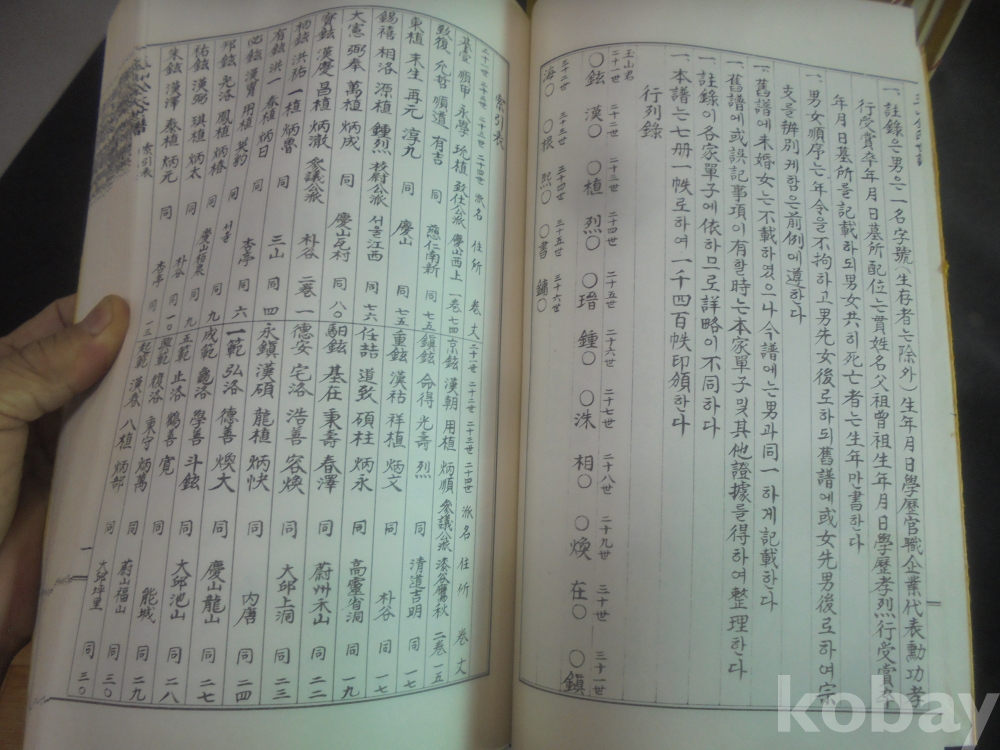 一、註錄은男은一名字號(生存者는除外)生年月日學歷官職企業代表勳功孝
行受賞卒年月日墓所配位는貫姓名父祖曾祖生年月日學歷孝烈行受賞卒
年月日墓所를記載하되男女共히死亡者는生年만書한다
一、男女順序는年令을不拘하고男先女後로하되舊譜에或女先男後로하여宗
支를辨別케함은前例에遵한다
一、舊譜에未婚女는不載하였으나今譜에는男과同一하게記載한다
一、舊譜에或誤記事項이有할時는本家單子및其他證據를得하여整理한다
一、註錄이各家單子에依하므로詳略이不同하다
一、本譜는七册一帙로하여一千四百帙印頒한다
行列錄
二十一世 二十二世 二十三世 二十四世 二十五世 二十六世 二十七世 二十八世 二十九世 三十世 三十一世
玉山君 〇鉉 漢〇 〇植 烈〇 〇瑨 鍾〇 〇洙 相〇 〇煥 在〇 〇鎭
三十二世 三十三世 三十四世 三十五世 三十六世
海〇 〇根 熙〇 〇書 鏞〇
索引表
二十一世 二十二世 二十三世 二十四世 派名 住所 卷 大
基壹 順甲 永學 琉植 致仕公派 慶山西上 一卷 七四
致復 允哲 順道 有吉 慈仁南新 同 七五
東植 末生 再元 淳九 同 慶山 同 七五
錫禧 相洛 源植 鍾烈 校尉公派 서울江西 同 七六
大憲 弼奉 萬植 炳成 同 慶山 村 同 八〇
漢慶 昌植 炳澈 參議公派 朴谷 二卷 一
洪 一植 炳魯 同 三山 同 四
有鉉 洪一 泰植 炳日 同 杏亭 同 六
鉉 漢 用植 同 서울 同 九
邦鉉 洛 鳳植 炳椿 同 慶山 同 九
祐鉉 漢弼 琪植 炳太 同 朴谷 同 一〇
朱鉉 漢澤 泰植 炳元 同 杏亭 同 一三
索引表
二十一世 二十二世 二十三世 二十四世 派名 住所 卷 大
京鉉 漢朝 用植 炳順 參議公派 漆谷鷹秋 二卷 一五
鎭鉉 命得 光壽 烈 同 清道吉明 同 一七
重鉉 漢祐 祥植 炳文 同 朴谷 同 一七
任喆 道致 碩柱 炳永 同 高靈省洞 同 一九
馹鉉 基在 秉壽 春澤 同 蔚州禾山 同 二二
德安 宅洛 浩善 容煥 同 大邱上洞 同 二三
永鎭 漢碩 龍植 炳快 同 內唐 同 二四
一範 弘洛 德善 煥大 同 慶山龍山 同 二七
成範 龜洛 學善 斗鉉 同 大邱池山 同 二八
五範 止洛 鶴善 寬 同 能城 同 二九
範 復洛 秉守 炳萬 同 蔚山福山 同 三〇
起範 漢春 八植 炳郁 同 大邱坪里 同 三〇
一
kobay